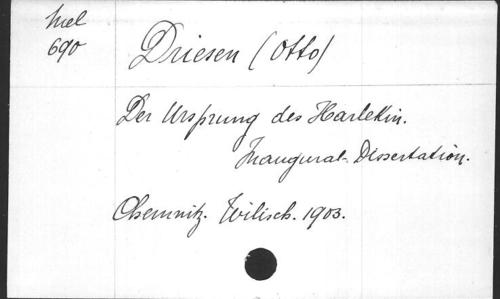 Mel
690
Driesen (Otto)
Der Ursprung des Harlekin.
Inaugural-Dissertation.
Chemnitz. Wilisch. 1903.